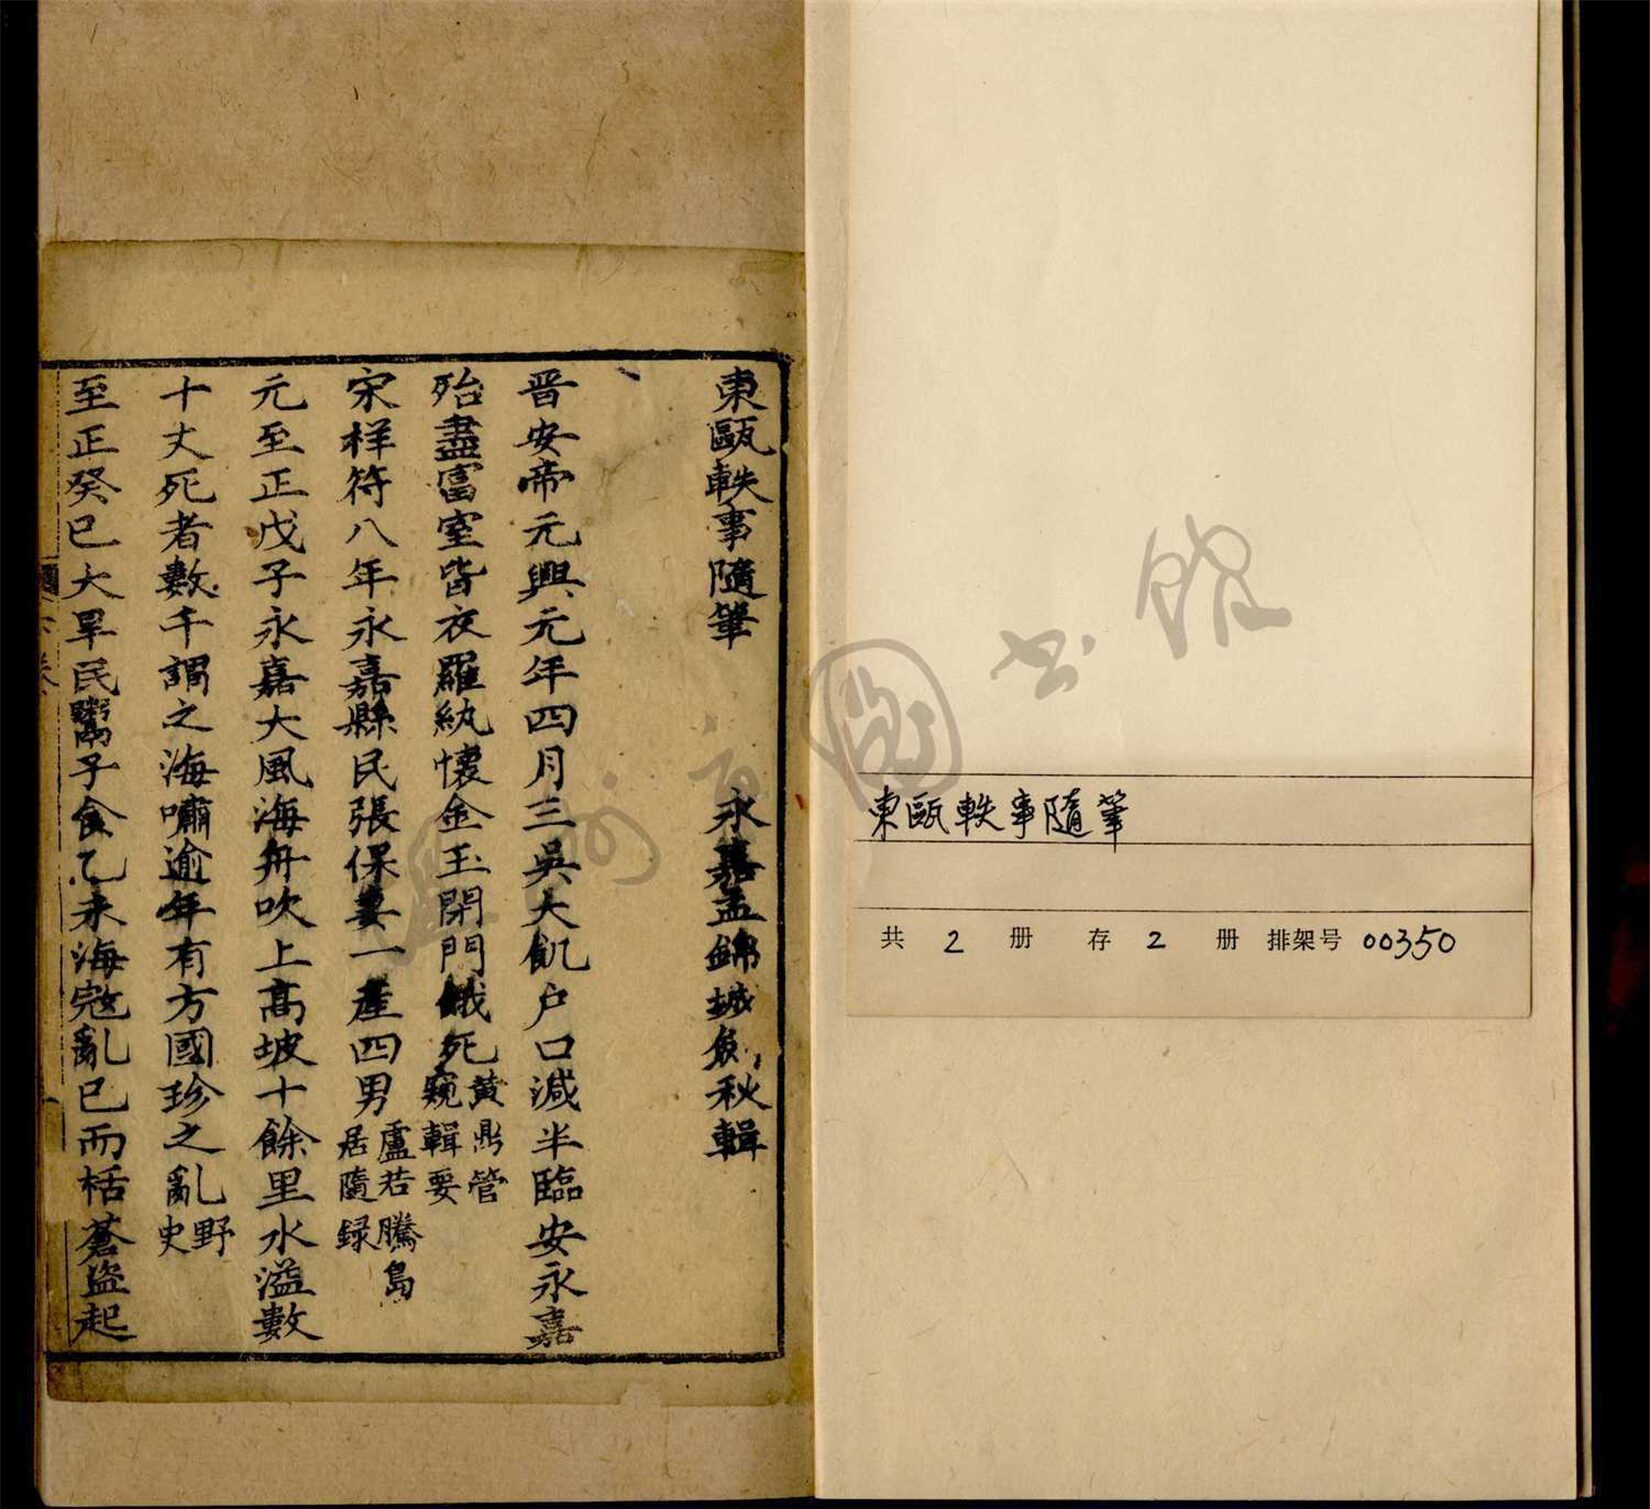 東甌軼事隨筆
共 2 册 存 2 册 排架号 00350
東甌軼事隨筆 永嘉孟錦城 秋輯
晋安帝元興元年四月三吳大飢户口減半臨安永嘉
殆盡富室皆衣羅紈懷金玉閉門餓死 黃鼎管窺輯要
宋祥符八年永嘉縣民張保妻一產四男 盧若騰島居隨録
元至正戊子永嘉大風海舟吹上高坡十餘里水溢數
十丈死者數千謂之海嘯逾年有方國珍之亂 野史
至正癸巳大旱民鬻子食乙未海寇亂已而栝蒼盜起